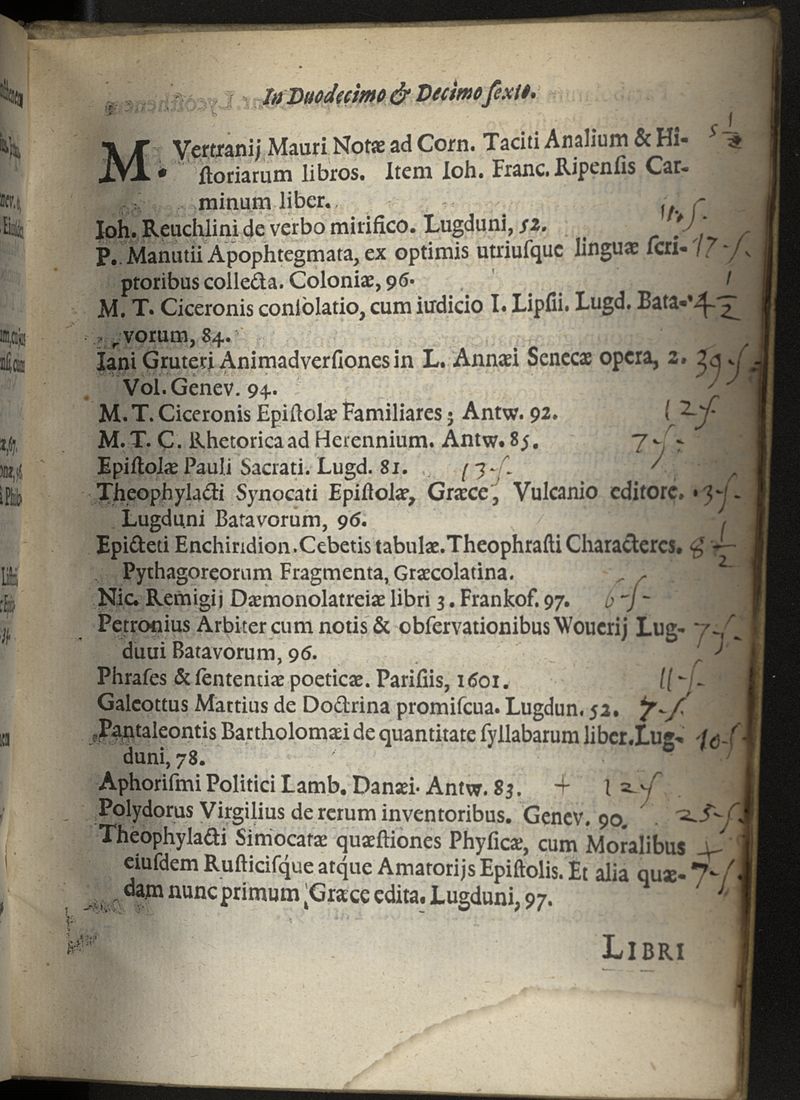 In Duodecimo & Decimo ſexto.
M. Vertranij Mauri Notæ ad Corn. Taciti Analium & Hi- 5 1/2
ſtoriarum libros. Item Ioh. Franc. Ripenſis Car-
minum liber.
Ioh. Reuchlini de verbo mirifico. Lugduni, 52.
P. Manutii Apophtegmata, ex optimis utriuſque linguæ ſcri- 17-ſ
ptoribus collecta. Coloniæ, 96.
M. T. Ciceronis conſolatio, cum iudicio I. Lipſii. Lugd. Bata- 4 1/2
vorum, 84.
Iani Gruteri Animadverſiones in L. Annæi Senecæ opera, 2. 39-ſ-
Vol. Genev. 94.
M. T. Ciceronis Epiſtolæ Familiares; Antw. 92. 12-ſ
M. T. C. Rhetorica ad Herennium. Antw. 85. 7-ſ-
Epiſtolæ Pauli Sacrati. Lugd. 81. 13-ſ-
Theophylacti Synocati Epiſtolæ, Græce, Vulcanio editore. 3-ſ-
Lugduni Batavorum, 96.
Epicteti Enchiridion. Cebetis tabulæ. Theophraſti Characteres. 8 1/2
Pythagoreorum Fragmenta, Græcolatina.
Nic. Remigij Dæmonolatreiæ libri 3. Frankof. 97. 6-ſ-
Petronius Arbiter cum notis & obſervationibus Wouerij Lug- 7-ſ-
duui Batavorum, 96.
Phraſes & ſententiæ poeticæ. Pariſiis, 1601. 11-ſ-
Galeottus Martius de Doctrina promiſcua. Lugdun. 52. 7-ſ
Pantaleontis Bartholomæi de quantitate ſyllabarum liber. Lug- 10-ſ-
duni, 78.
Aphoriſmi Politici Lamb. Danæi. Antw. 83. + 12-ſ
Polydorus Virgilius de rerum inventoribus. Genev. 90. 25-ſ
Theophylacti Simocatæ quæſtiones Phyſicæ, cum Moralibus +
eiuſdem Ruſticiſque atque Amatorijs Epiſtolis. Et alia quæ- 7-ſ
dam nunc primum Græce edita. Lugduni, 97.
LIBRI